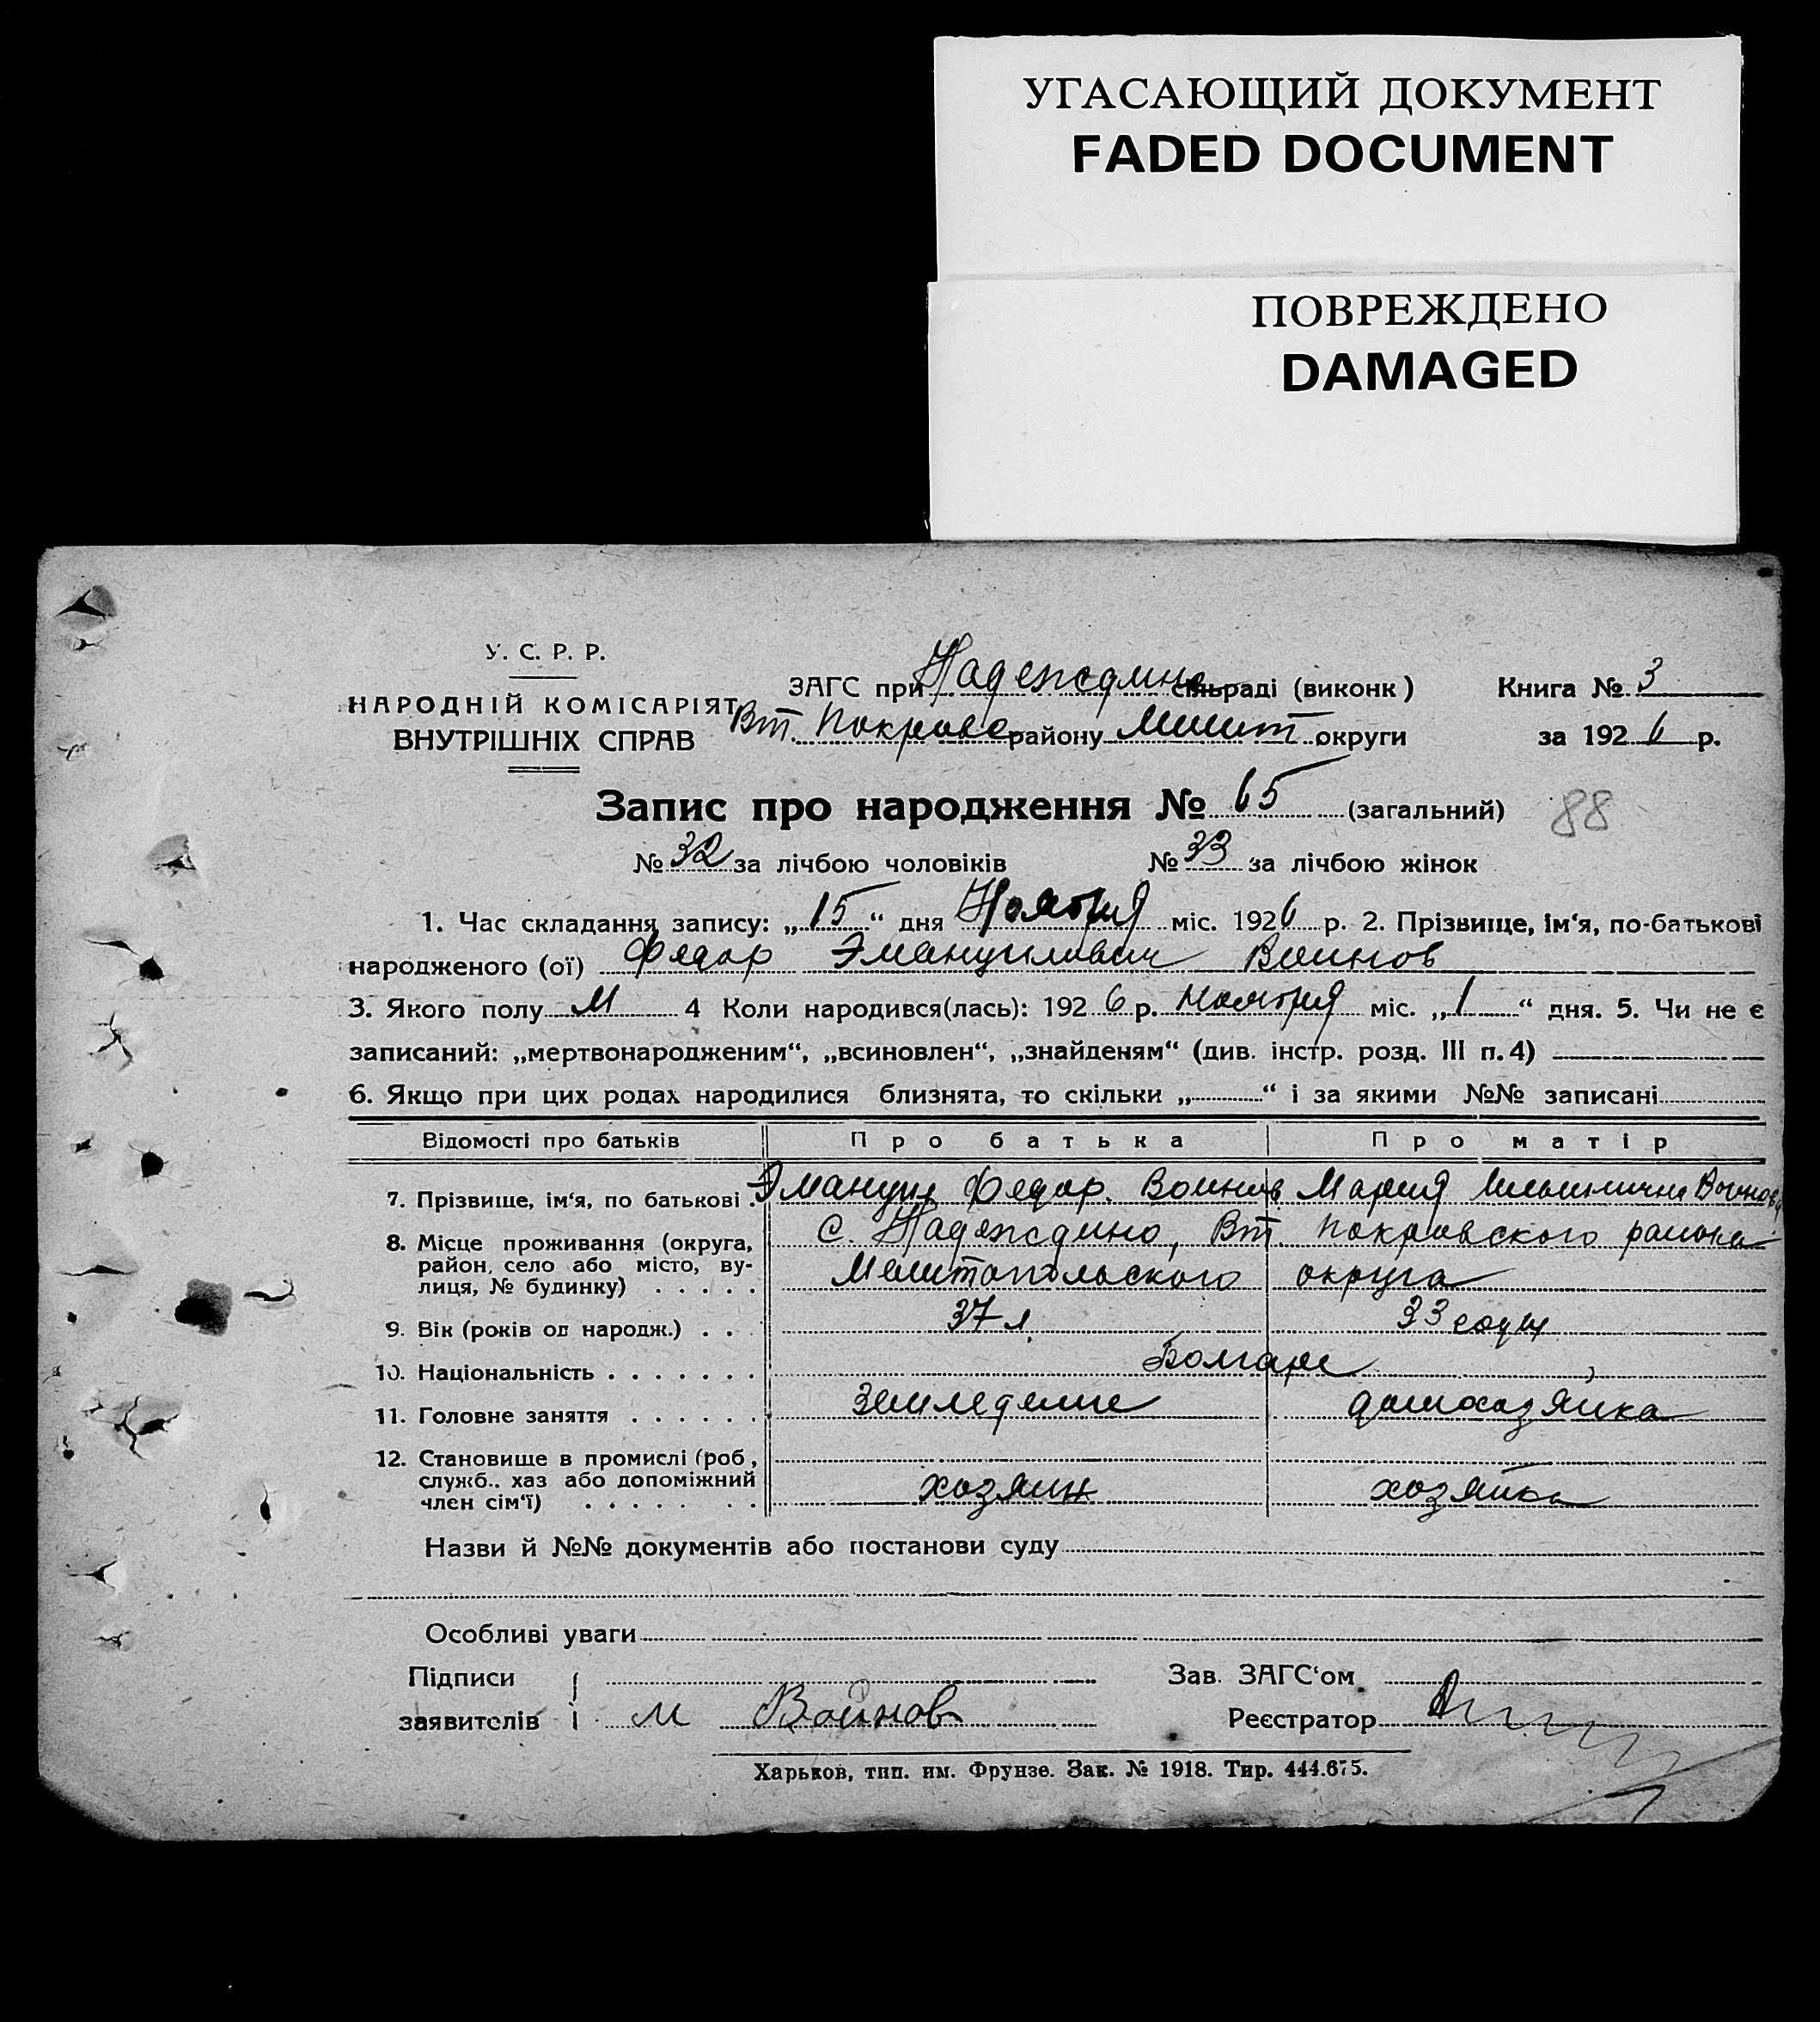 УГАСАЮЩИЙ ДОКУМЕНТ
FADED DOCUMENT
ПОВРЕЖДЕНО
DAMAGED
У. С. Р. Р.
НАРОДНІЙ КОМІСАРІЯТ
ВНУТРІШНІХ СПРАВ
ЗАГС при Надеждино сільраді (виконк) Книга № 3
Вт. Покровс району Мелит округи за 1926 р.
Запис про народження № 65 (загальний) 88
№ 32 за лічбою чоловіків № 33 за лічбою жінок
1. Час складання запису: „15“ дня Ноября міс. 1926 р. 2. Прізвище, ім‘я, по-батькові
народженого (ої) Федор Эмануилович Воинов
3. Якого полу М 4 Коли народився(лась): 1926 р. Ноября міс. „1“ дня. 5. Чи не є
записаний: „мертвонародженим“, „всиновлен“, „знайденям“ (див. інстр. розд. III п. 4)
6. Якщо при цих родах народилися близнята, то скільки „ “ і за якими №№ записані
Відомості про батьків Про батька Про матір
7. Прізвище, ім‘я, по батькові . Эмануил Федор. Воинов Мария Воинова
8. Місце проживання (округа, район, село або місто, вулиця, № будинку) . . . . . С. Надеждино, Вт. Покровского района
Мелитопольского округа
9. Вік (років од народж.) . . . 37 л. 33 годы
10. Національність . . . . . . . Болгаре
11. Головне заняття . . . . . . земледелие домохозяйка
12. Становище в промислі (роб,
служб.. хаз або допоміжний
член сім‘ї) . . . . . . . хозяин хозяйка
Назви й №№ документів або постанови суду
Особливі уваги
Підписи Зав. ЗАГС‘ом
заявителів М Воинов Реєстратор
Харьков, тип. им. Фрунзе. Зак. № 1918. Тир. 444.675.